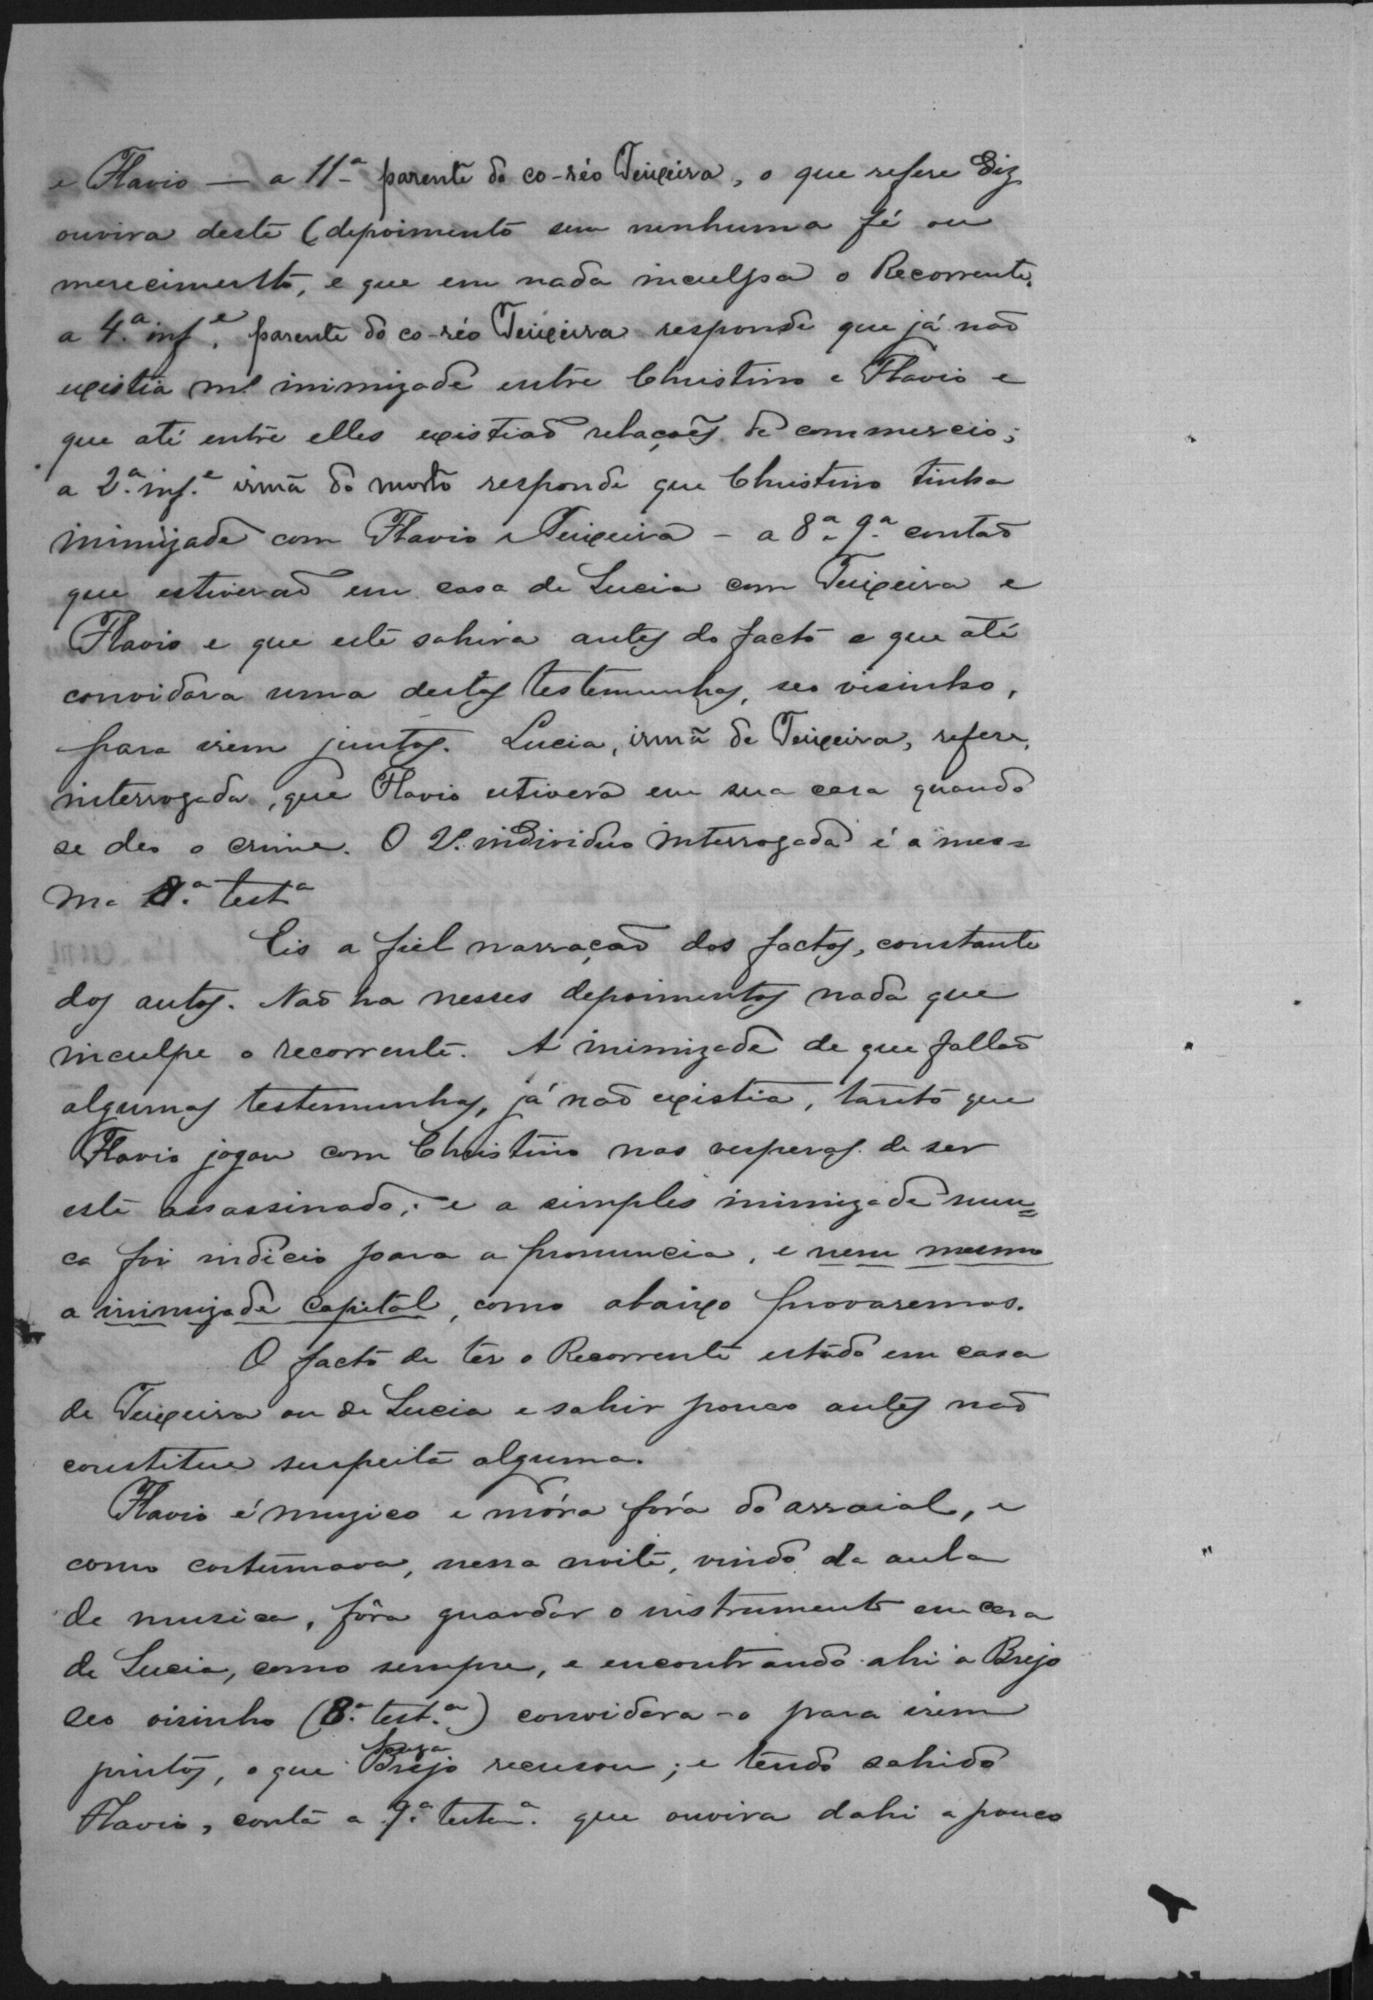 e Flavio — a 11ª parente do co-réo Teixeira, o que refere diz
ouvira deste (depoimento sem nenhuma fé ou
merecimento, e que em nada inculpa o Recorrente.
a 4.ª inf.e, parente do co-réo Teixeira responde que já não
existia mˢ inimizade entre Christino e Flavio e
que até entre elles existiao relações de commercio;
a 2.ª inf.e irmã do morto responde que Christino tinha
inimizade com Flavio e Teixeira – a 8ª 9.ª contão
que estiverão em casa de Lucia com Teixeira e
Flavio e que este sahira antes do facto e que até
convidara uma destas testemunhas, seo visinho,
para irem juntos. Lucia, irmã de Teixeira, refere,
interrogada, que Flavio estivera em sua casa quando
se deo o crime. O 2º individuo interrogado é a mes=
ma 8.ª testª
Eis a fiel narração dos factos, constante
dos autos. Não ha nesses depoimentos nada que
inculpe o recorrente. A inimizade de que fallão
algumas testemunhas, já não existia, tanto que
Flavio jogou com Christino nas vesperas de ser
este assassinado; e a simples inimizade nun=
ca foi indicio para a pronuncia, e nem mesmo
a inimizade capital, como abaixo provaremos.
O facto de ter o Recorrente estado em casa
de Teixeira ou de Lucia e sahir pouco antes não
constitue suspeita alguma.
Flavio é muzico e móra fóra do arraial, e
como costumava, nessa noite, vindo da aula
de musica, fôra guardar o instrumento em casa
de Lucia, como sempre, e encontrando ahi a Brejo
seo visinho (8.ª test.ª) convidara-o para irem
juntos, o que Brejo recusou; e tendo sahido
Flavio, conta a 9.ª testem.ª que ouvira dahi a pouco